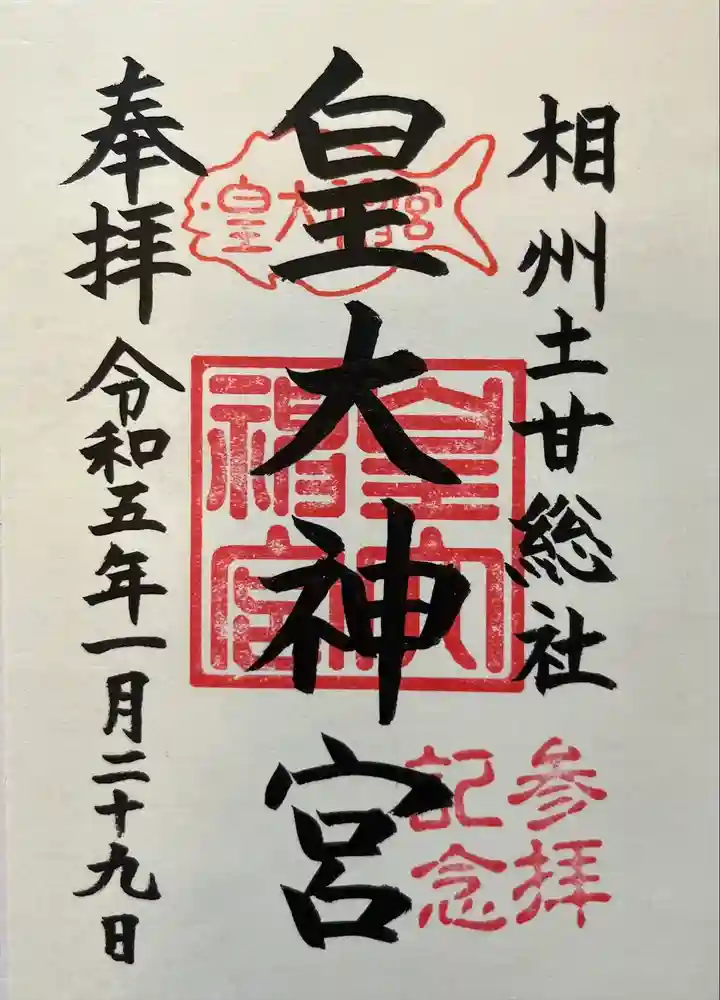 相州土甘総社
皇大神宮
奉拝 令和五年一月二十九日
皇大神宮
皇大
神宮
参拝
記念